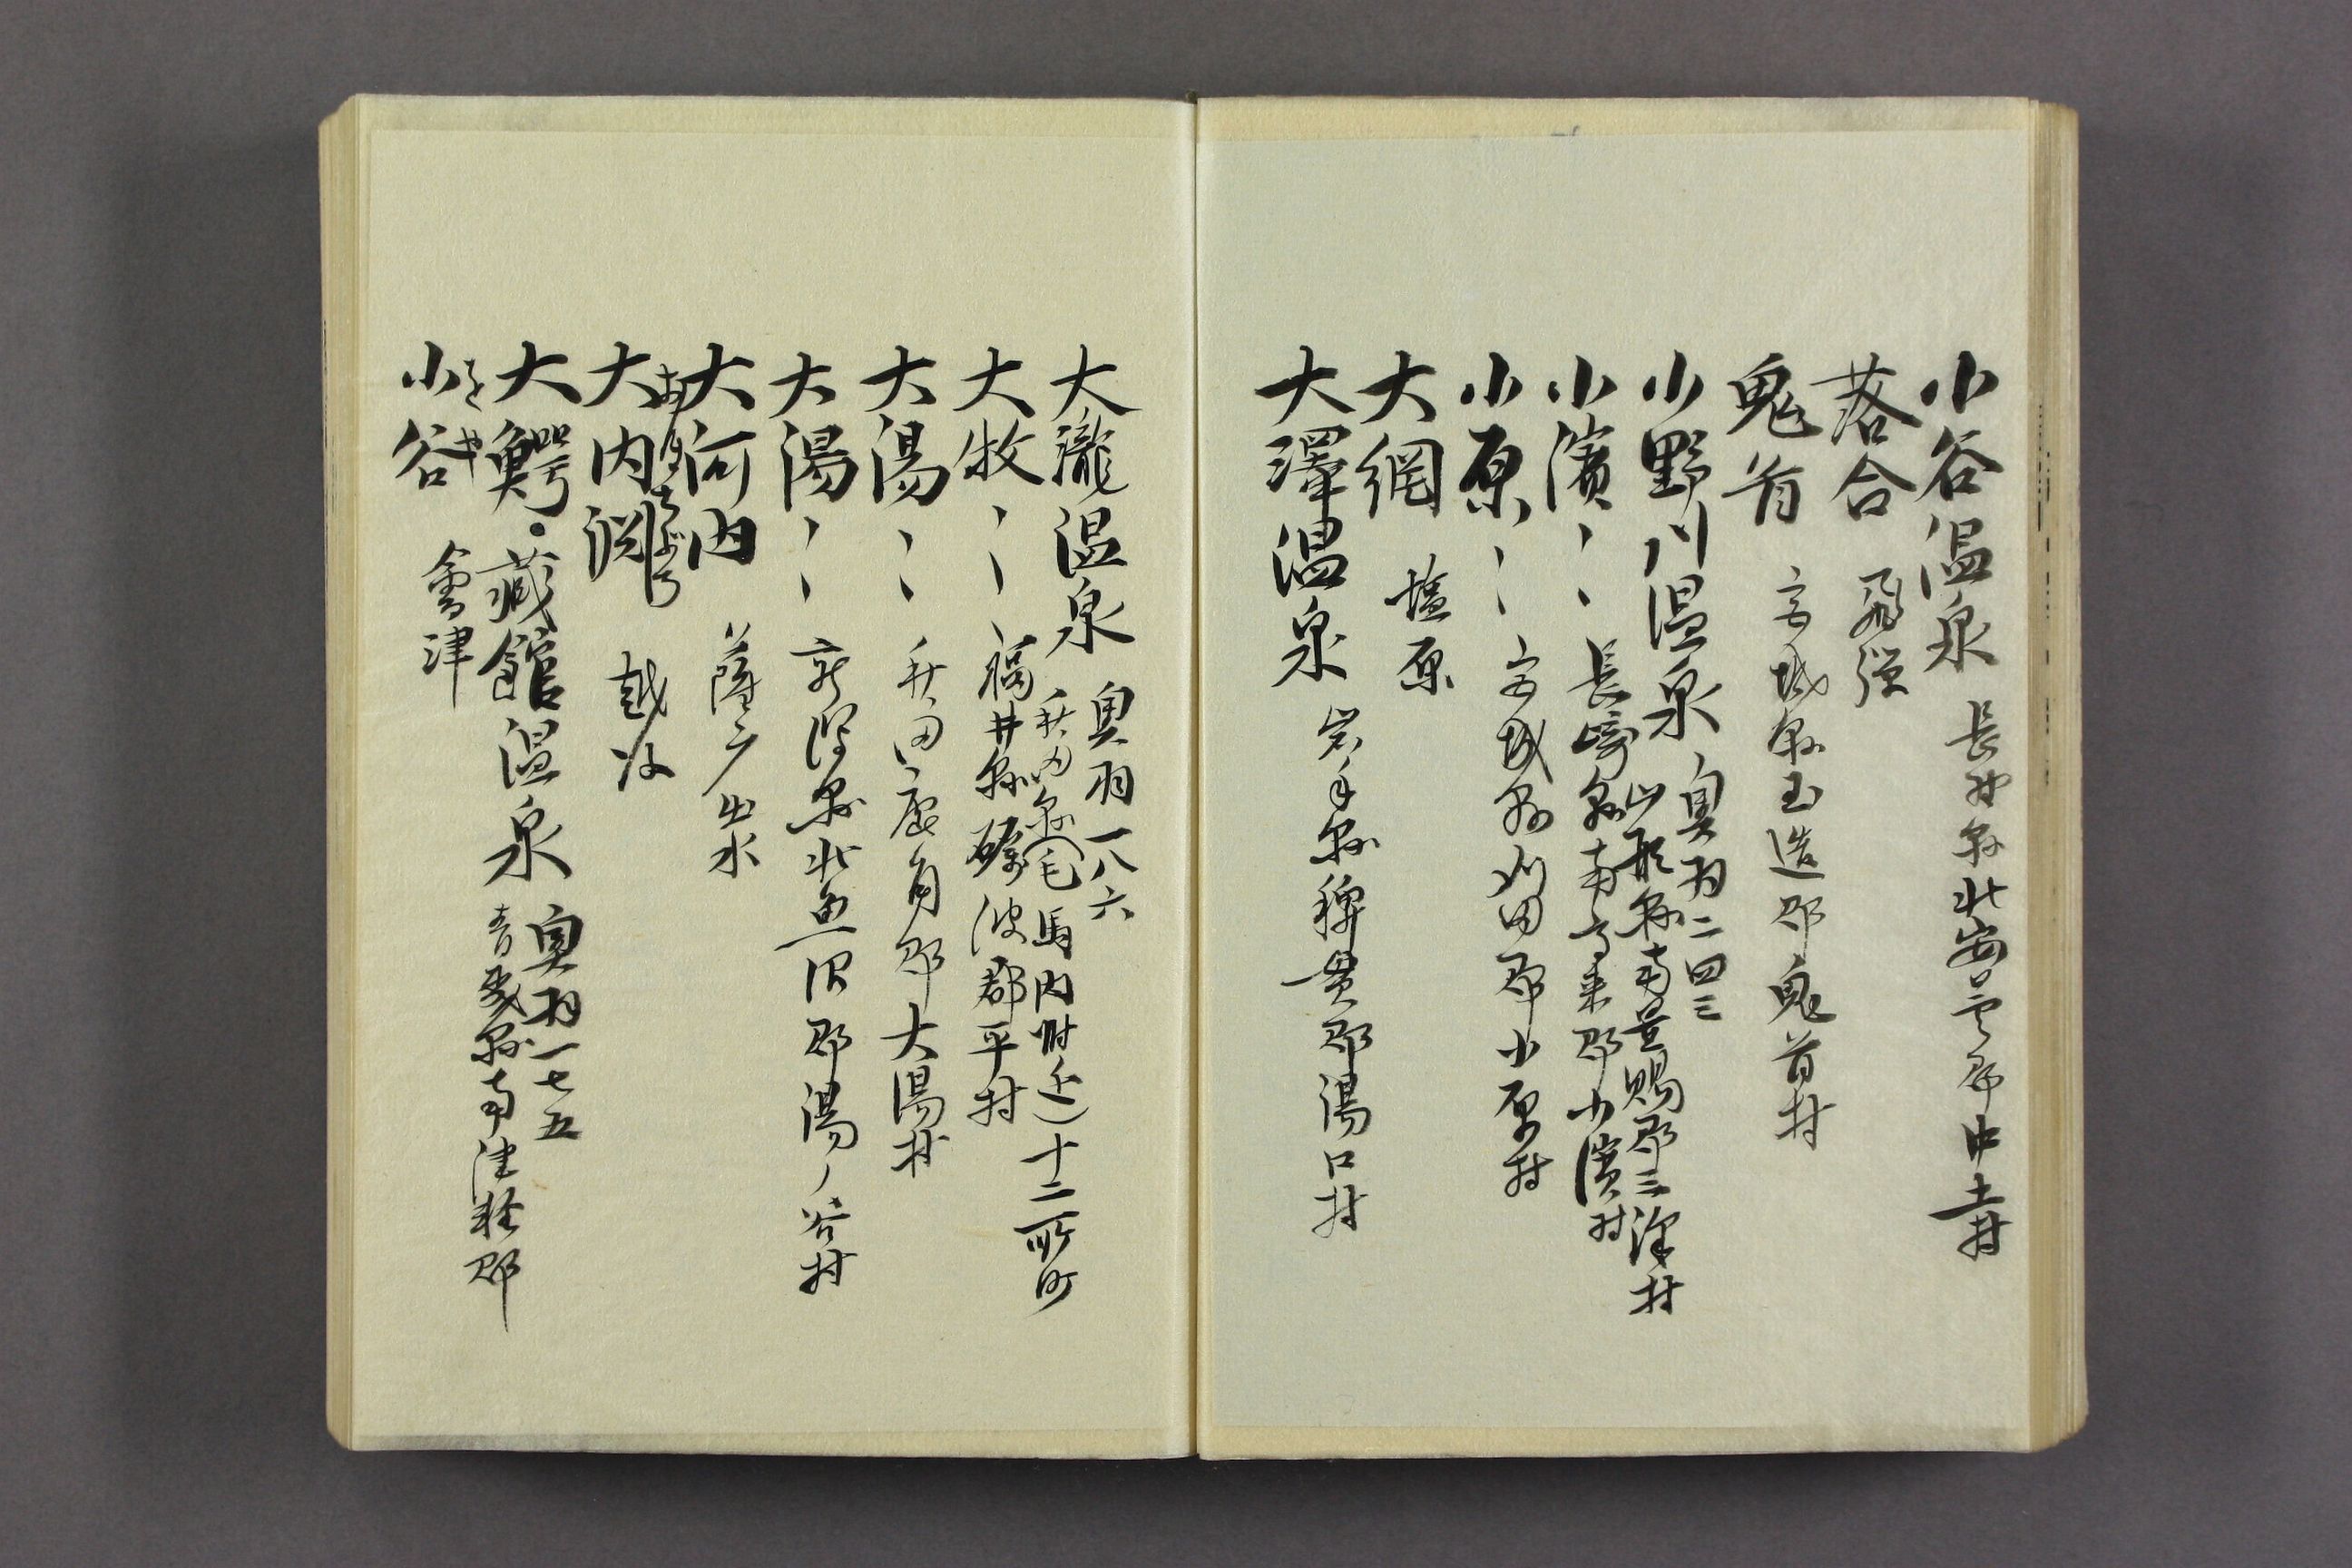 小谷温泉 長野縣北安曇郡中土村
落合 飛弾
鬼首 宮城縣玉造郡鬼首村
小野川温泉 奥羽二四三
山形縣南置賜郡三澤村
小濱〻〻 長崎縣南高来郡小濱村
小原〻〻 宮城縣刈田郡小原村
大網 塩原
大澤温泉 岩手縣稗貫郡湯口村
大瀧温泉 奥羽一八六
秋田縣(毛馬内附近)十二所町
大牧〻〻 福井縣礪波郡平村
大湯〻〻 秋田鹿角郡大湯村
大湯〻〻 新潟縣北魚沼郡湯ノ谷村
大河内 薩ノ出水
大内淵 越後
大鰐・藏館温泉 奥羽一七五
青森縣南津軽郡
小谷 會津